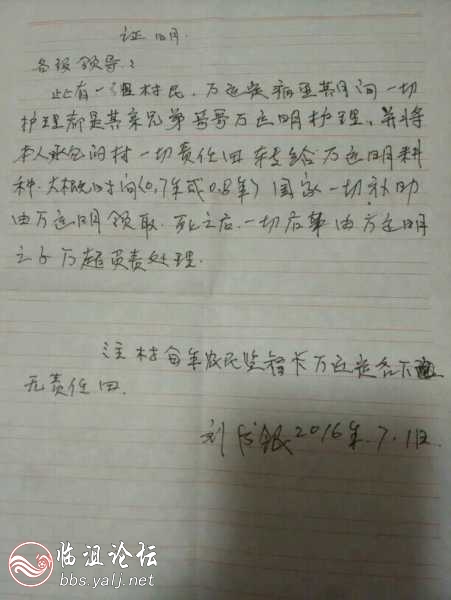 证明
各级领导:
此有一组村民,万运炎病重其间一切
护理都是其亲兄弟 万运明护理,并将
本人承包的村一切责任田转给万运明耕
种.大概时间(0.7年或0.8年)国家一切补助
由万运明领取.死之后.一切后事由万运明
之子万超负责处理.
注村每年农民监督卡万运炎名下
无责任田.
刘 银2016年.7.1日
临沮论坛
bbs.yalj.net